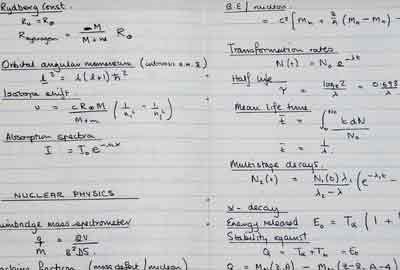 Rydberg Const.
R₀ = R∞
R_hydrogen = ∞M / M+m R∞
Orbital angular momentum (intrinsic
l² = l(l+1)ħ²
Isotope shift.
υ = cR∞M / M+m (1/n₁² - 1/n₂²)
Absorption spectra
I = I₀e
NUCLEAR PHYSICS
mass spectrometer
q/m =
fraction (mass defect/nucleon)
B.E/nucleon
= c² [ Mₙ + Z/A (M_H - Mₙ) -
Transformation rates
N(t) = N₀ e^-λt
Half life
τ = log_e 2 / λ = 0.693 / λ
Mean life time
t̄ = ∫₀^N₀ t dN / N₀
t̄ = 1/λ
Multistage decays.
N₂(t) = N₁(0)λ₁ / λ₂ - λ₁ (e^-λ₁t -
α - decay
Energy released E₀ = Tα (1 +
Stability against
Q = Tα + T = E₀
Q = (Z,A) - (Z-2, A-4)